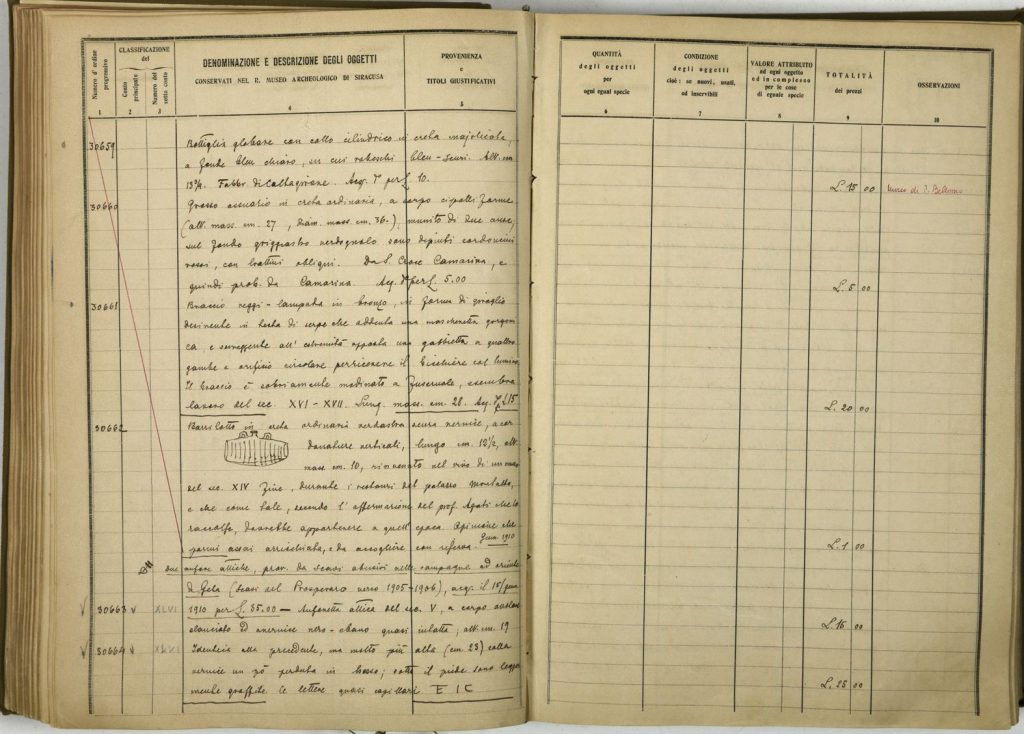 Numero d'ordine progressivo
CLASSIFICAZIONE
del
Conto principale
Numero del sotto conto
DENOMINAZIONE E DESCRIZIONE DEGLI OGGETTI
CONSERVATI NEL R. MUSEO ARCHEOLOGICO DI SIRACUSA
PROVENIENZA
e
TITOLI GIUSTIFICATIVI
1 2 3 4 5
30659 Bottiglia globare con collo cilindrico in creta majolicata,
a fondo bleu chiaro, su cui rabeschi bleu-scuri. Alt. cm
13 3/4. Fabbr. di Caltagirone. Acq. per £ 10.
30660 Grosso ossuario in creta ordinaria, a corpo
(alt. mass. cm. 27, diam. mass. cm. 36.), munito di due anse,
sul fondo grigiastro verdognolo sono dipinti cordoncini
rossi, con trattini obliqui. Da S. Croce Camarina, e
quindi prob. da Camarina. Acq. per £. 5.00
30661 Braccio reggi-lampada in bronzo, in forma di
desinente in testa di serpe che addenta una mascheretta gorgoni
ca, e sorreggente all'estremità opposta una gabbietta a quattro
gambe e orifizio circolare per il bicchiere col lumino
Il braccio è sobriamente modinato a, e sembra
lavoro del sec. XVI - XVII. Lung. mass. cm. 28. Acq. £ 15
30662 Barilotto in creta ordinaria nerastra senza vernice, a cor
donature verticali, lungo cm. 12 1/2, alt.
mass cm. 10, rinvenuto nel vivo di un muro
del sec. XIV fine, durante i restauri del palazzo Montalto,
e che come tale, secondo l'affermazione del prof. Agati che lo
raccolse, dovrebbe appartenere a quell'epoca. Opinione che
parmi assai arrischiata, e da accogliere con riserva. Genn. 1910
due anfore attiche, prov. da scavi abusivi nelle campagne ad oriente
di Gela (scavi del Prosperaro verso 1905-1906), acq. il 15/genn
30663 v XLVI 1910 per £. 35.00 — Anforetta attica del sec. V, a corpo ovolare
slanciato ed a vernice nero-ebano quasi intatta; alt. cm. 19
30664 v XLVI Identica alla precedente, ma molto più alta (cm. 23) colla
vernice un pò perduta in basso; sotto il piede sono legger
mente graffite le lettere quasi capillari E I C
QUANTITÀ
degli oggetti
per
ogni egual specie
6
CONDIZIONE
degli oggetti
cioè: se nuovi, usati,
od inservibili
7
VALORE ATTRIBUITO
ad ogni oggetto
ed in complesso
per le cose
di eguale specie
8
TOTALITÀ
dei prezzi
9
OSSERVAZIONI
10
L. 15 00 Museo di P. Bellomo
L. 5 00
L. 20 00
L. 1 00
L. 15 00
L. 25 00